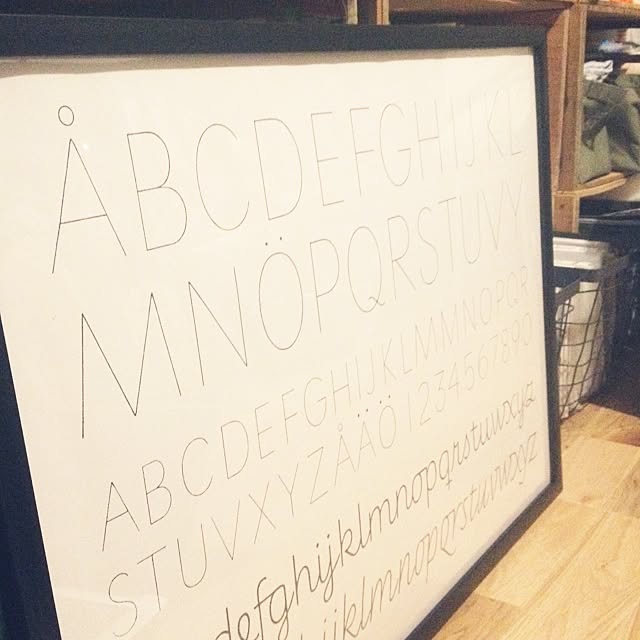 ÅBCDEFGHIJKL
MNÖPQRSTUVY
ABCDEFGHIJKLMMNOPQR
STUVXYZÅÄÖ1234567890
defghijklmnopqrstuvxyz
ijklmnopqrstuvwxyz